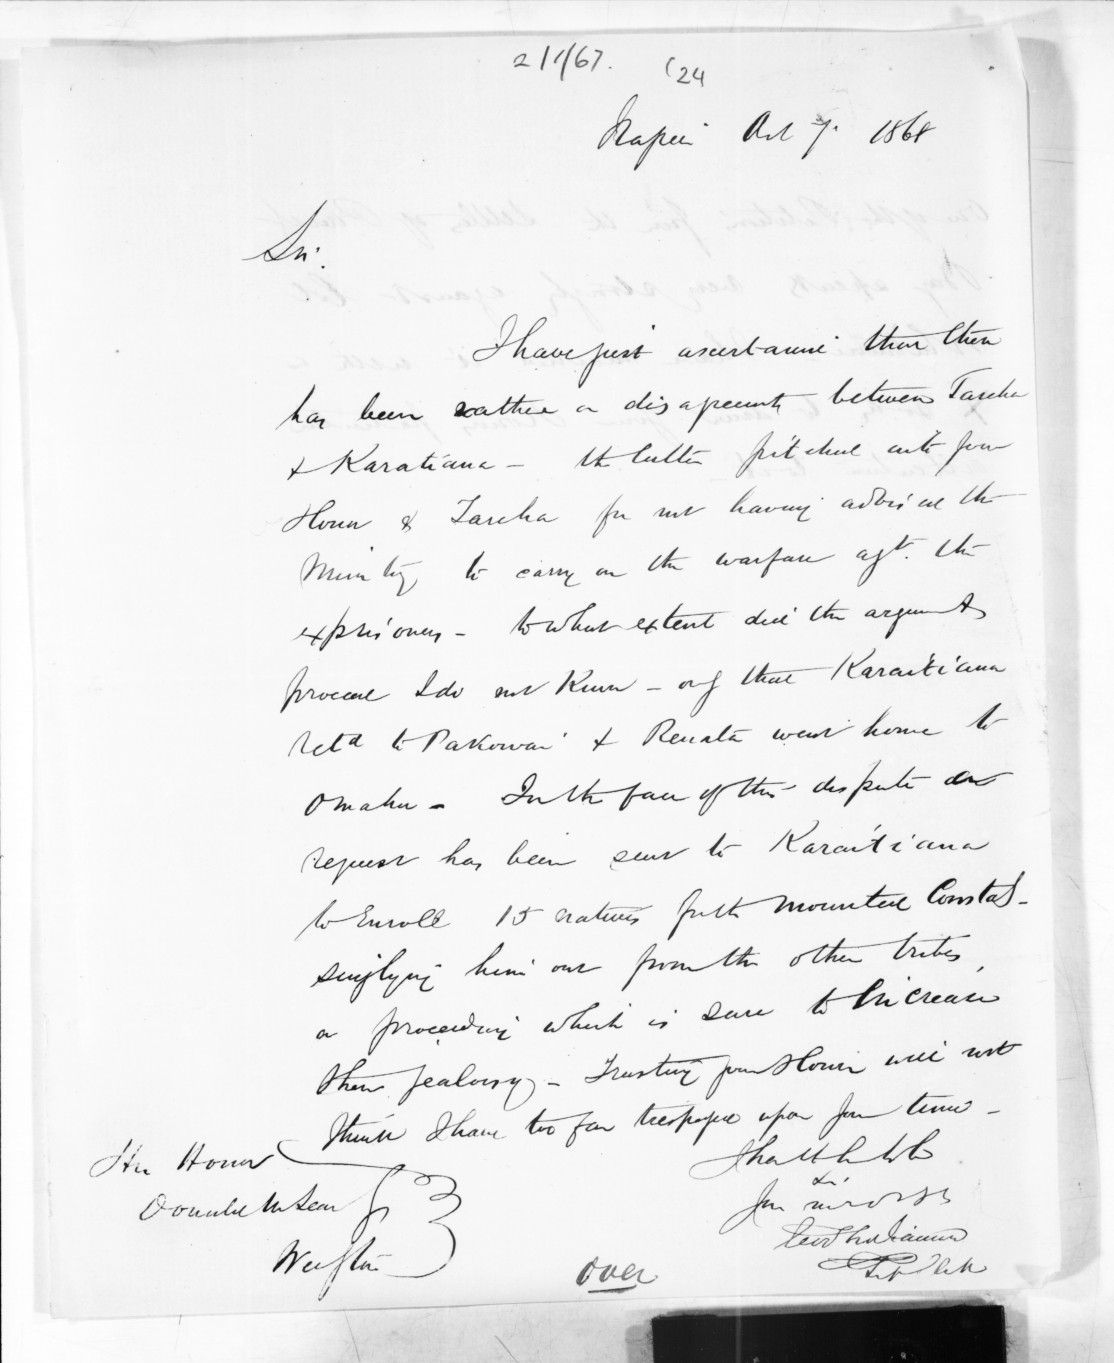 2/1/67. (24
Napier Oct 7. 1868
Sir.
I have just ascertained that there
has been rather a disagreement between Tareha
& Karaitiana - the latter pitched into your
Honor & Tareha for not having advised the
Ministry to carry on the warfare agt. the
exprisoners - to what extent did the arguments
proceed I do not know - only that Karaitiana
retd to Pakowai & Renata went home to
Omahu - In the face of this dispute a
request has been sent to Karaitiana
to Enroll 15 natives for the Mounted Constab-
singling him out from the other tribes,
a proceeding which is sure to increase
their jealousy - Trusting your Honor will not
think I have too far trespassed upon your time -
I have the honor to be
Sir
Your most obt
His Honor
Donald McLean
Wellington
over